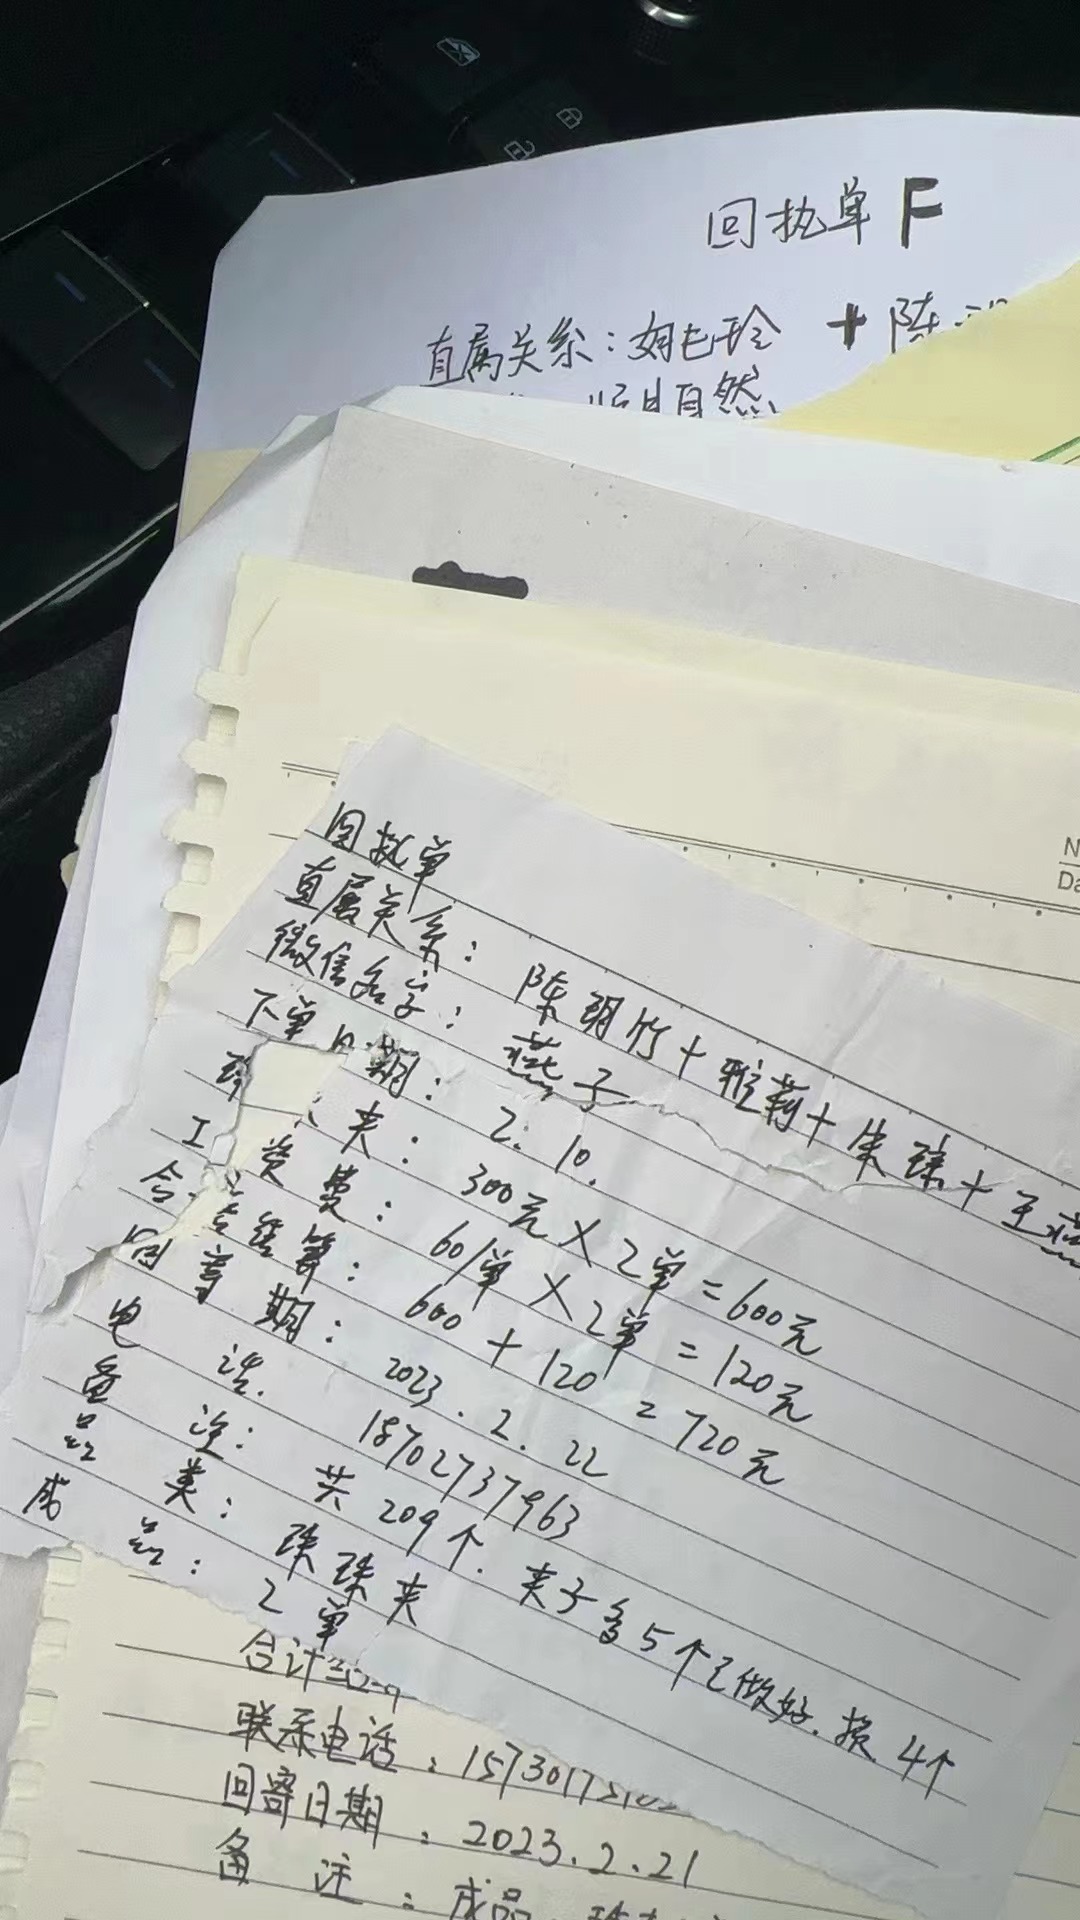 回执单 F
直属关系：姚七玲 + 陈
自然
N
Da
回执单
直属关系：陈玥竹+雅莉+朱珠+王燕
微信名字：燕子
下单日期：2.10.
夹：300元×2单=600元
工 费：60/单×2单=120元
合 售算：600+120=720元
回寄 期：2023.2.22
电 话. 18702737963
备 注：共209个.夹子多5个已做好.损4个
品 类：珠珠夹
成 品：2单
合计
联系电话：15730175
回寄日期：2023.2.21
备 注：成品